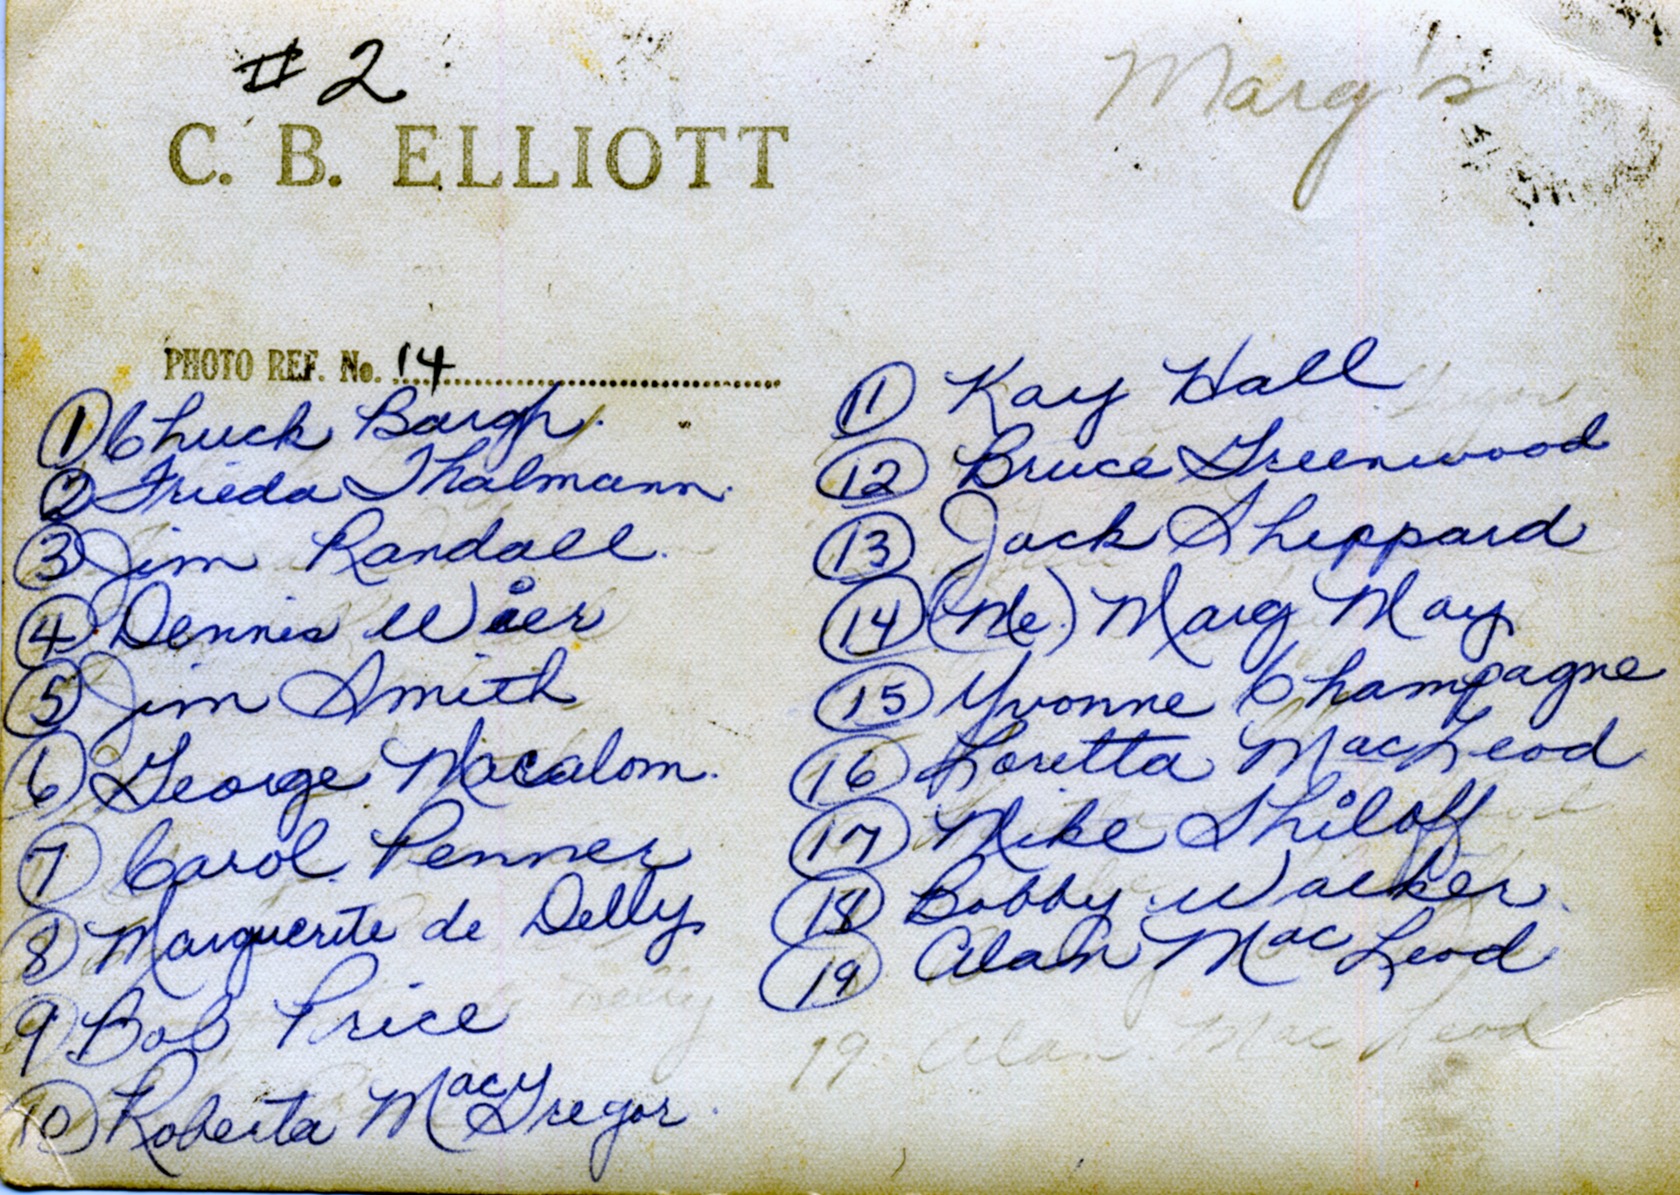 #2
Marg's
C. B. ELLIOTT
PHOTO REF. No. 14
1 Chuck Bargh.
2 Frieda Thalmann.
3 Jim Randall.
4 Dennis Wier
5 Jim Smith
6 George Macalom.
7 Carol Penner
8 Marguerite de Delly
9 Bob Price
10 Roberta MacGregor.
11 Kay Hall
12 Bruce Greenwood
13 Jack Sheppard
14 (Me.) Marg May
15 Yvonne Champagne
16 Loretta MacLeod
17 Mike Shiloff
18 Bobby Walker.
19 Alan MacLeod
19. Alan Mac Leod